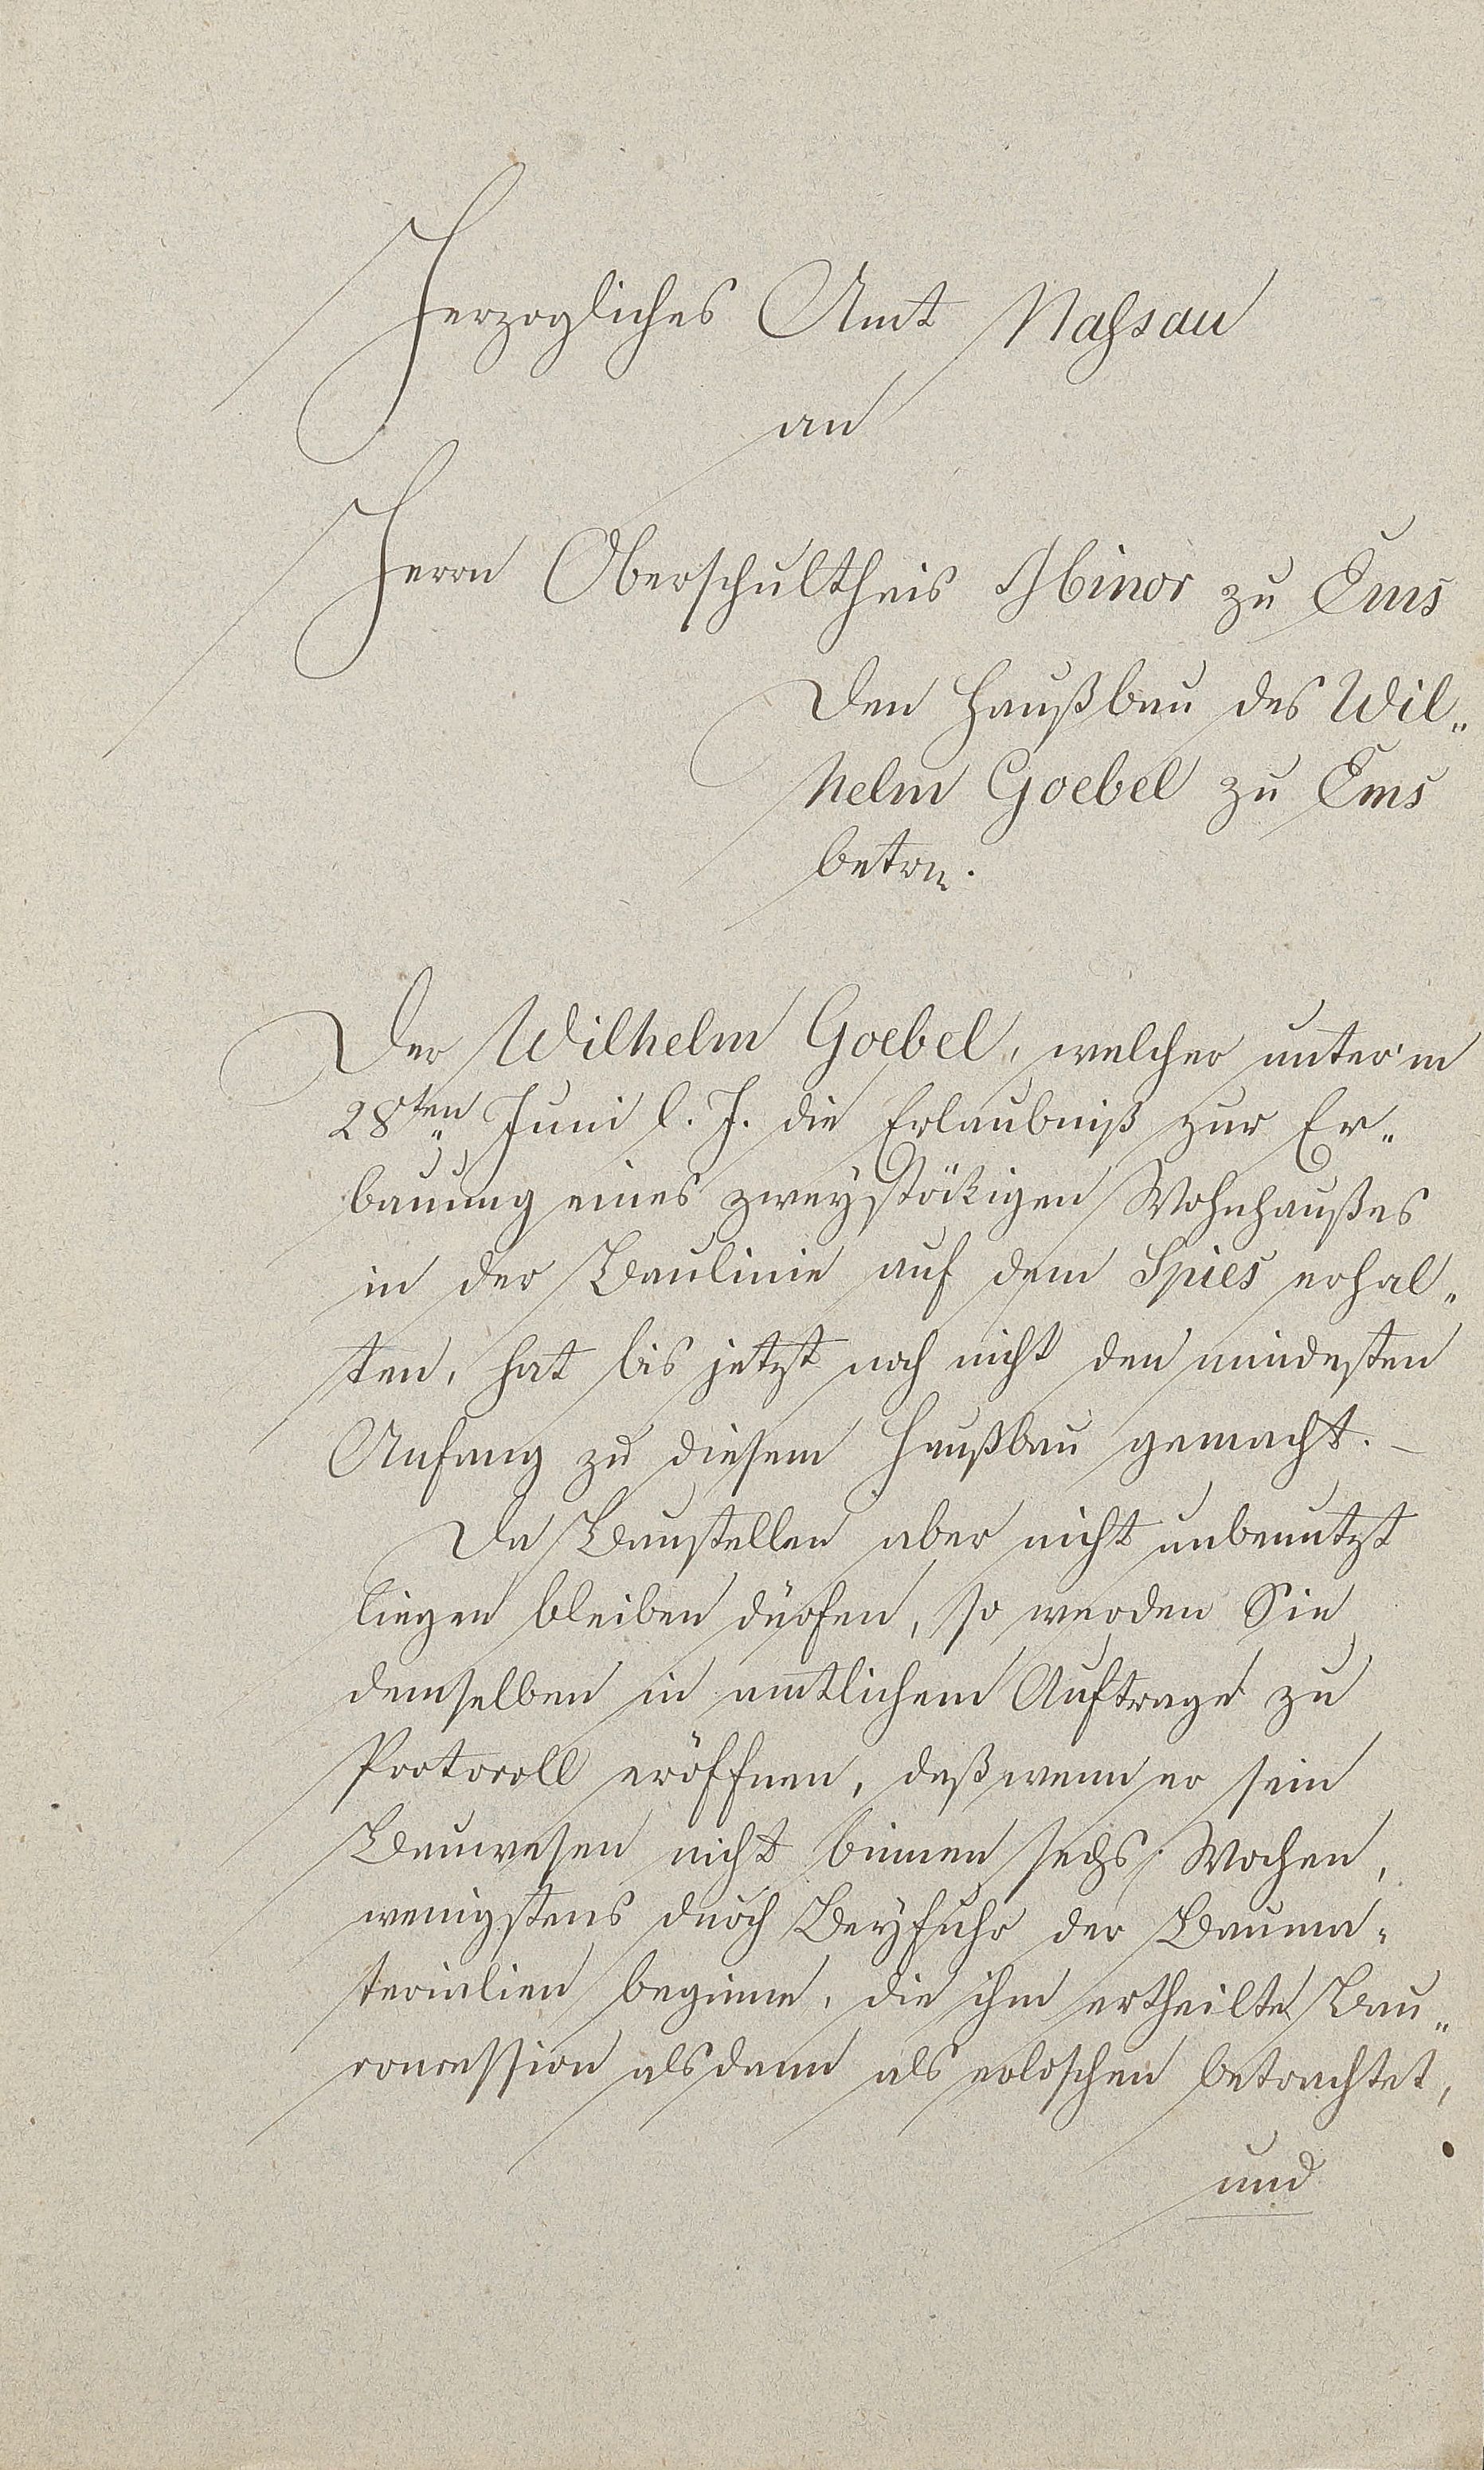 Herzogliches Amt Nassau
an
Herrn Oberschultheis Minor zu Ems
Den Haußbau des Wil„
helm Goebel zu Ems
betr.
Der Wilhelm Goebel, welcher unter'm
28ten Juni l. J. die Erlaubniß zur Er„
bauung eines zweystökigen Wohnhaußes
in der Baulinie auf dem Spies erhal„
ten, hat bis jetzt noch nicht den mindesten
Anfang zu diesem Haußbau gemacht. –
Da Baustellen aber nicht unbenutzt
liegen bleiben dürfen, so werden Sie
demselben in amtlichem Auftrage zu
Protocoll eröffnen, daß wenn er sein
Bauwesen nicht binnen sechs Wochen,
wenigstens durch Beyfuhr der Bauma„
terialien beginne, die ihm ertheilte Bau„
concession alsdann als erloschen betrachtet,
und